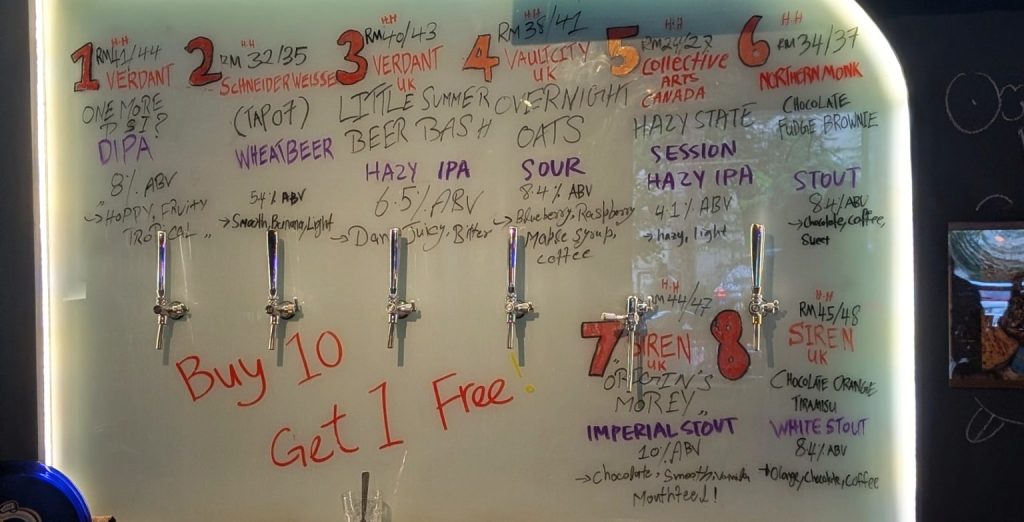 1
H·H
RM41/44
VERDANT
UK
ONE MORE
PSI?
DIPA
8% ABV
→ HOPPY, FRUITY
TROPICAL
2
H·H
RM 32/35
SCHNEIDER WEISSE
(TAP07)
WHEATBEER
5.4% ABV
→ Smooth, Banana, Light
3
H·H
RM40/43
VERDANT
UK
LITTLE SUMMER
BEER BASH
HAZY IPA
6.5% ABV
→ Dank, Juicy, Bitter
4
H·H
RM38/41
VAULTCITY
UK
OVERNIGHT
OATS
SOUR
8.4% ABV
→ Blueberry, Raspberry
Maple Syrup,
coffee
5
H·H
Collective
ARTS
CANADA
HAZY STATE
SESSION
HAZY IPA
4.1% ABV
→ hazy, light
6
H·H
RM 34/37
NORTHERN MONK
CHOCOLATE
FUDGE BROWNIE
STOUT
8.4% ABV
→ chocolate, coffee,
Sweet
7
H·H
RM44/47
SIREN
UK
MOREY"
IMPERIAL STOUT
10% ABV
→ Chocolate, Smooth, vanilla
Mouthfeel!
8
H·H
RM45/48
SIREN
UK
CHOCOLATE ORANGE
TIRAMISU
WHITE STOUT
8.4% ABV
→ Orange, Chocolate, Coffee
Buy 10
Get 1 Free!